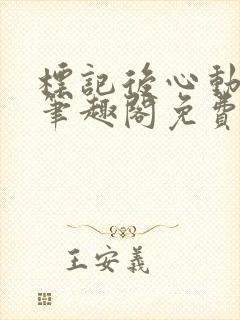 標記後心動
筆趣閣免費
王安義